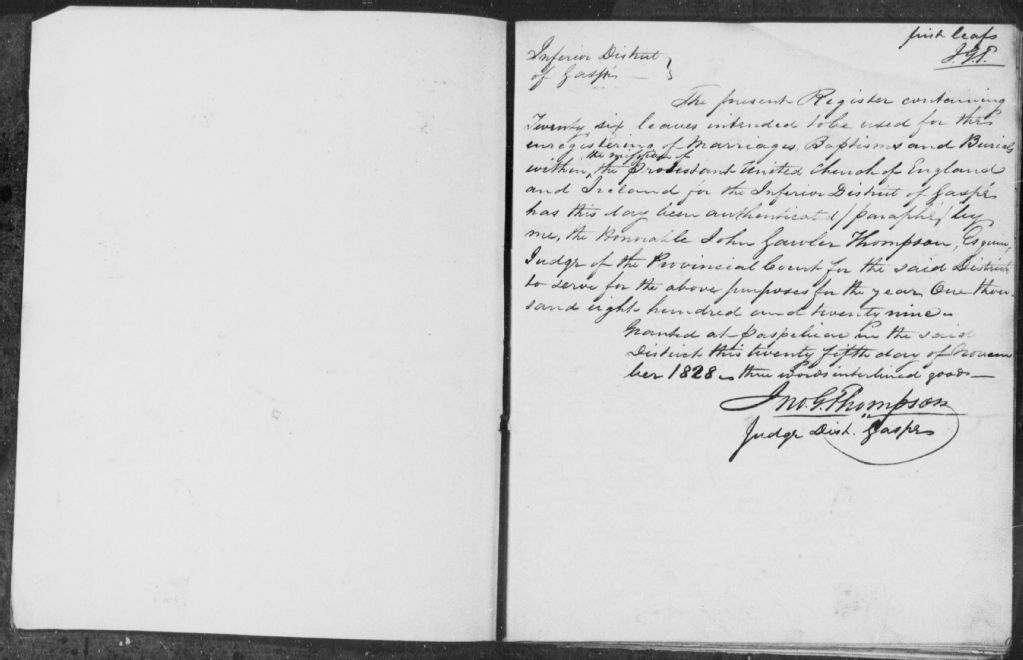 first leaf
J.G.T.
Inferior District
of Gaspé
The present Register containing
Twenty six leaves intended to be used for the
enregistering of Marriages, Baptisms and Burials
the mission of
within the Protestant United Church of England
and Ireland for the Inferior District of Gaspé
has this day been authenticated (paraphé) by
me, the Honorable John Gawler Thompson, Esquire,
Judge of the Provincial Court for the said District
to serve for the above purposes for the year One thou-
sand eight hundred and twenty nine
Granted at Paspebiac in the said
District this twenty fifth day of Novem
ber 1828 three words interlined good
Jno. G. Thompson
Judge Dist. Gaspé